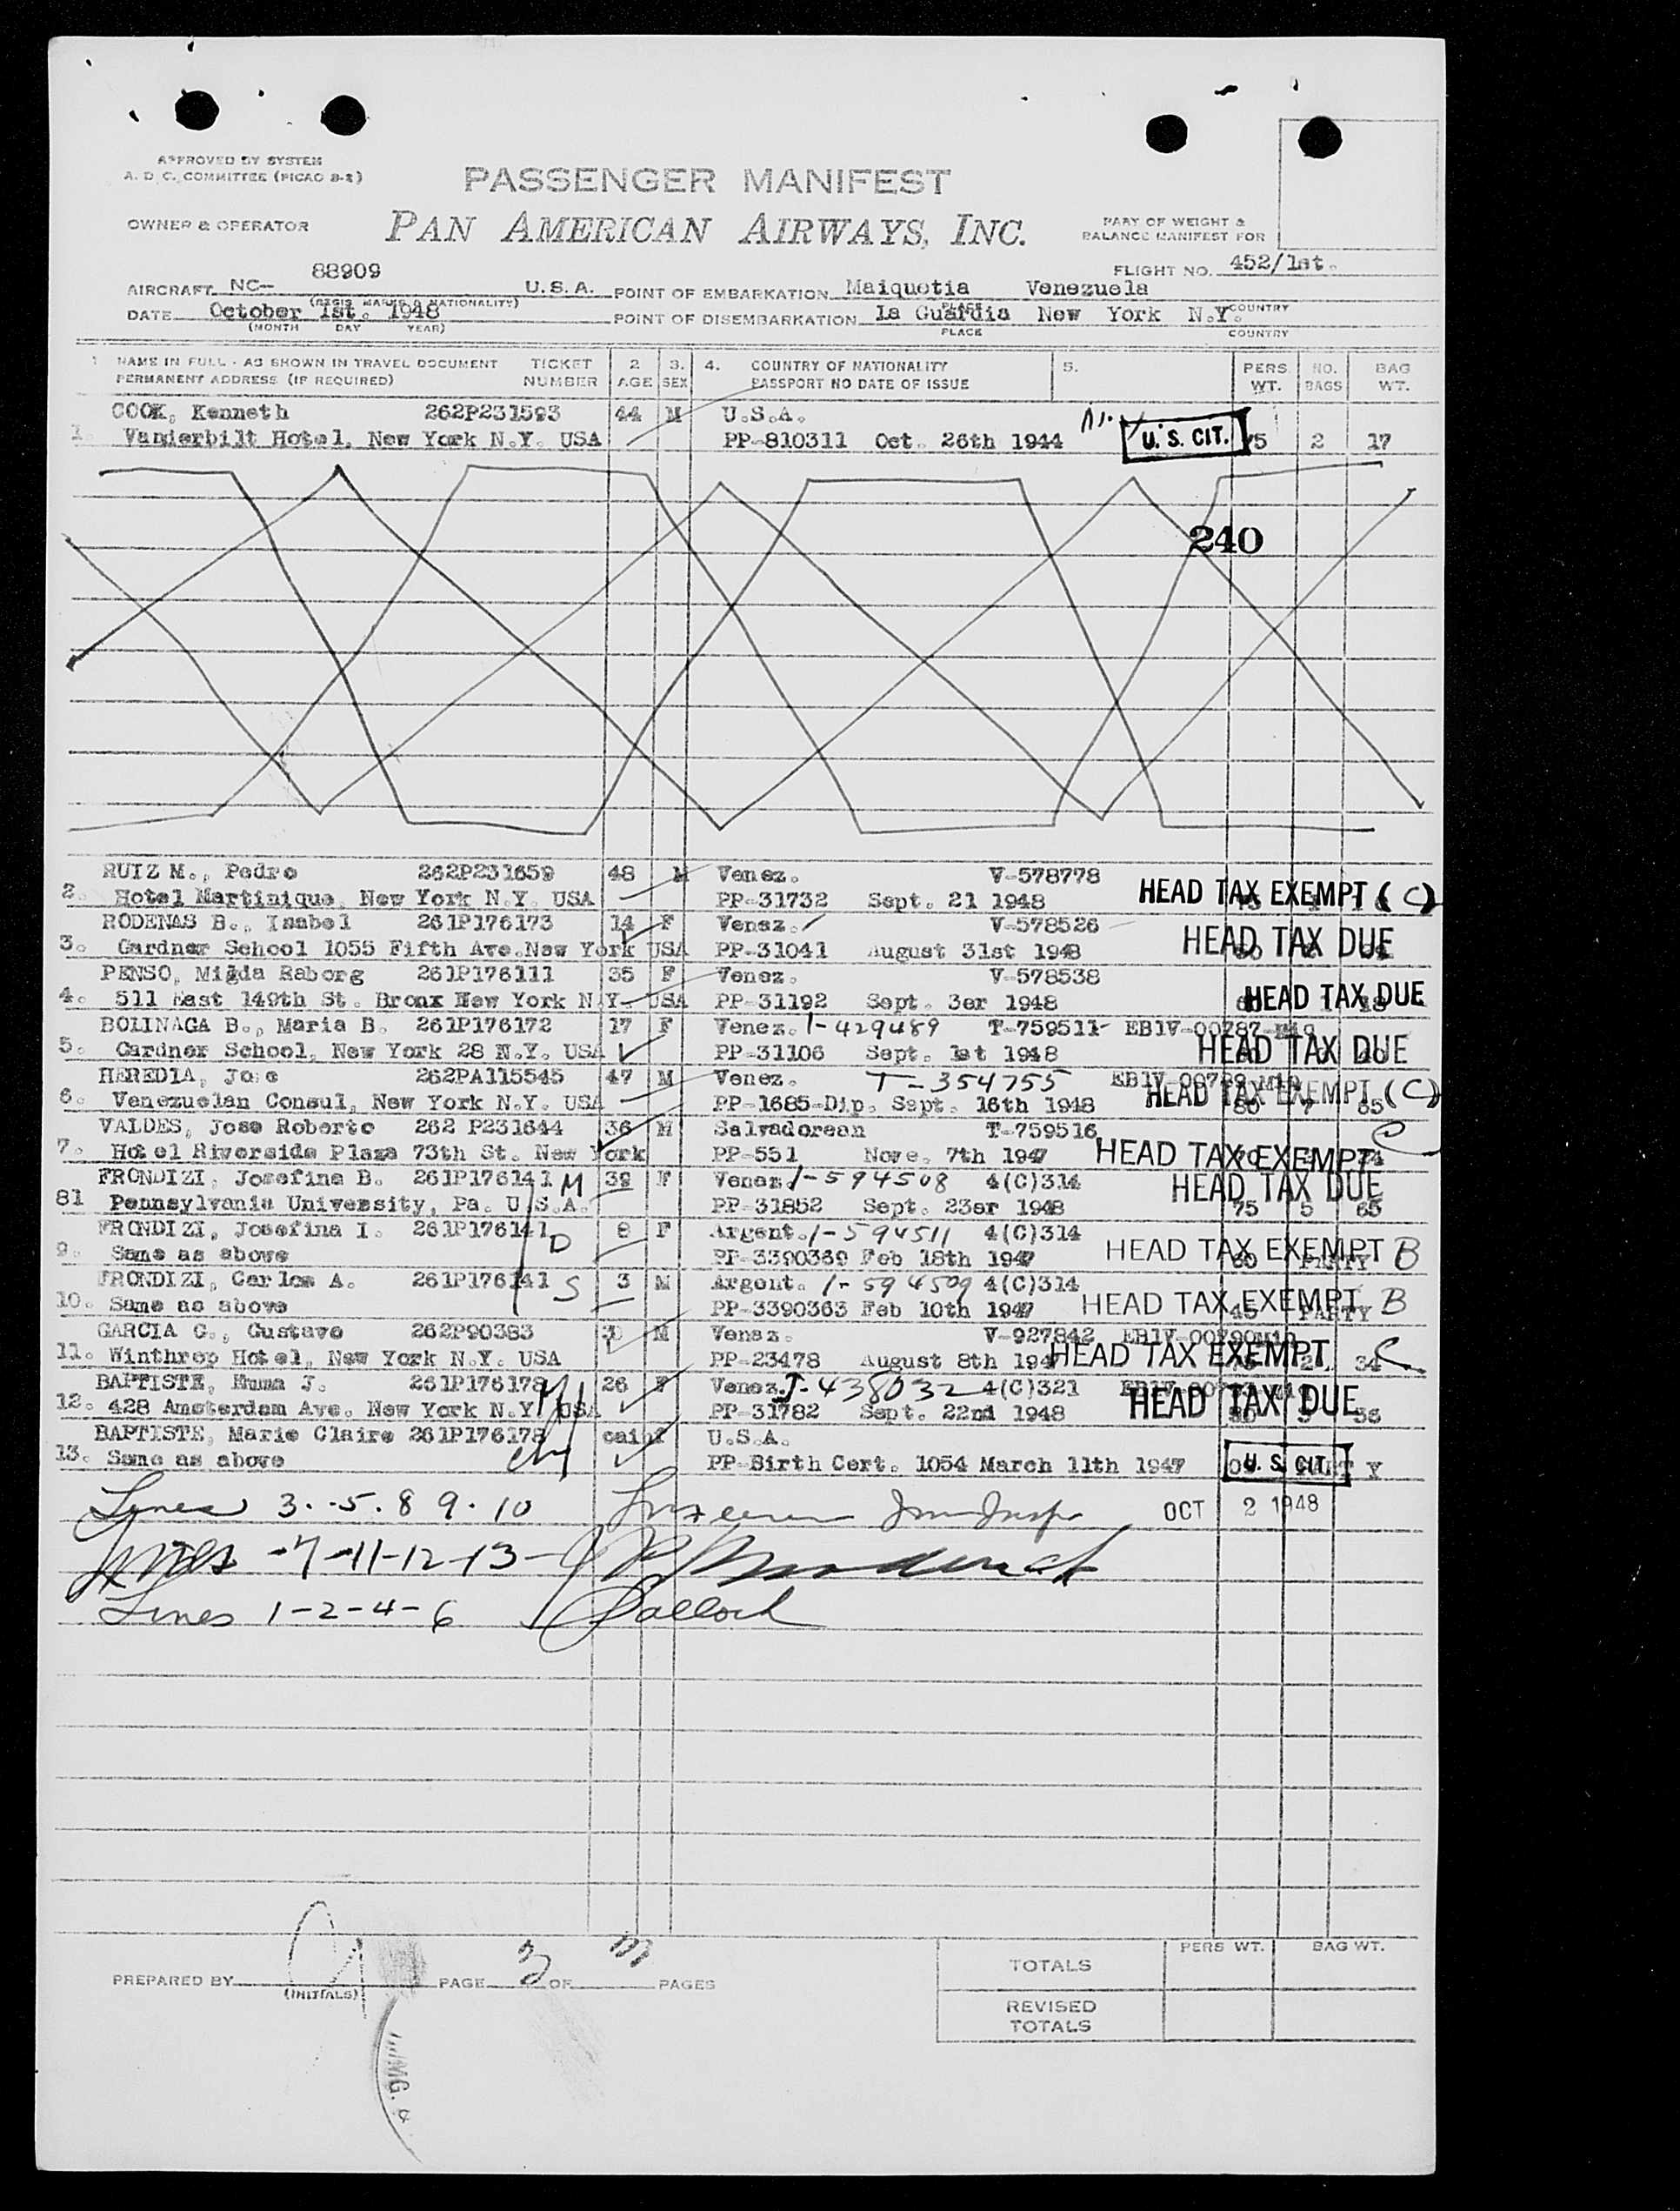 APPROVED BY SYSTEM
A. D. C. COMMITTEE (PICAO B-2)
PASSENGER MANIFEST
OWNER & OPERATOR
PAN AMERICAN AIRWAYS, INC.
PART OF WEIGHT &
BALANCE MANIFEST FOR
FLIGHT NO. 452/1st.
AIRCRAFT NC- 88909 U.S.A. POINT OF EMBARKATION Maiquetia Venezuela
(REGIS. MARKS & NATIONALITY) PLACE COUNTRY
DATE October 1st. 1948 POINT OF DISEMBARKATION La Guardia New York N.Y.
(MONTH DAY YEAR) PLACE COUNTRY
1 NAME IN FULL - AS SHOWN IN TRAVEL DOCUMENT TICKET 2 3. 4. COUNTRY OF NATIONALITY 5. PERS. NO. BAG
PERMANENT ADDRESS (IF REQUIRED) NUMBER AGE SEX PASSPORT NO DATE OF ISSUE WT. BAGS WT.
COOK, Kenneth 262P231593 44 M U.S.A.
1. Vanderbilt Hotel, New York N.Y. USA PP-810311 Oct. 26th 1944 U.S. CIT. 75 2 17
240
RUIZ M., Pedro 262P231659 48 M Venez. V-578778
2. Hotel Martinique, New York N.Y. USA PP-31732 Sept. 21 1948 HEAD TAX EXEMPT (C)
RODENAS B., Isabel 261P176173 14 F Venez. V-578526
3. Gardner School 1055 Fifth Ave.New York USA PP-31041 August 31st 1948 HEAD TAX DUE
PENSO, Migda Raborg 261P176111 35 F Venez. V-578538
4. 511 East 149th St. Bronx New York N.Y. USA PP-31192 Sept. 3er 1948 HEAD TAX DUE
BOLINAGA B., Maria B. 261P176172 17 F Venez. 1-429489 T-759511- EB1V-00787-mia
5. Gardner School, New York 28 N.Y. USA PP-31106 Sept. 1st 1948 HEAD TAX DUE
HEREDIA, Jose 262PA115545 47 M Venez. T-354755 EB1V-00789 Mia
6. Venezuelan Consul, New York N.Y. USA PP-1685-Dip. Sept. 16th 1948 HEAD TAX EXEMPT (C) 80 7 65
VALDES, Jose Roberto 262 P231644 36 M Salvadorean T-759516
7. Hotel Riverside Plaza 73th St. New York PP-551 Nove. 7th 1947 HEAD TAX EXEMPT C
FRONDIZI, Josefina B. 261P176141 M 39 F Venez. 1-594508 4(C)314
81 Pennsylvania University, Pa. U.S.A. PP-31852 Sept. 23er 1948 HEAD TAX DUE 75 5 65
FRONDIZI, Josefina I. 261P176141 D 8 F Argent. 1-594511 4(C)314
9. Same as above PP-3390369 Feb 18th 1947 HEAD TAX EXEMPT B 60 PARTY
FRONDIZI, Carlos A. 261P176141 S 3 M Argent. 1-594509 4(C)314
10. Same as above PP-3390363 Feb 10th 1947 HEAD TAX EXEMPT B 45 PARTY
GARCIA G., Gustavo 262P90383 M Venez. V-927842 EB1V-00790Mia
11. Winthrop Hotel, New York N.Y. USA PP-23478 August 8th 194 HEAD TAX EXEMPT C 2 34
BAPTISTE, Emma J. 261P176178 M 26 F Venez. J-438032 4(C)321
12. 428 Amsterdam Ave. New York N.Y. USA PP-31782 Sept. 22nd 1948 HEAD TAX DUE
BAPTISTE, Marie Claire 261P176178 F U.S.A.
13. Same as above PP-Birth Cert. 1054 March 11th 1947 U.S. CIT.
Lines 3.-5.8 9.10 OCT 2 1948
Lines -7-11-12-13-
Lines 1-2-4-6
PREPARED BY PAGE OF PAGES
(INITIALS)
PERS WT. BAG WT.
TOTALS
REVISED
TOTALS